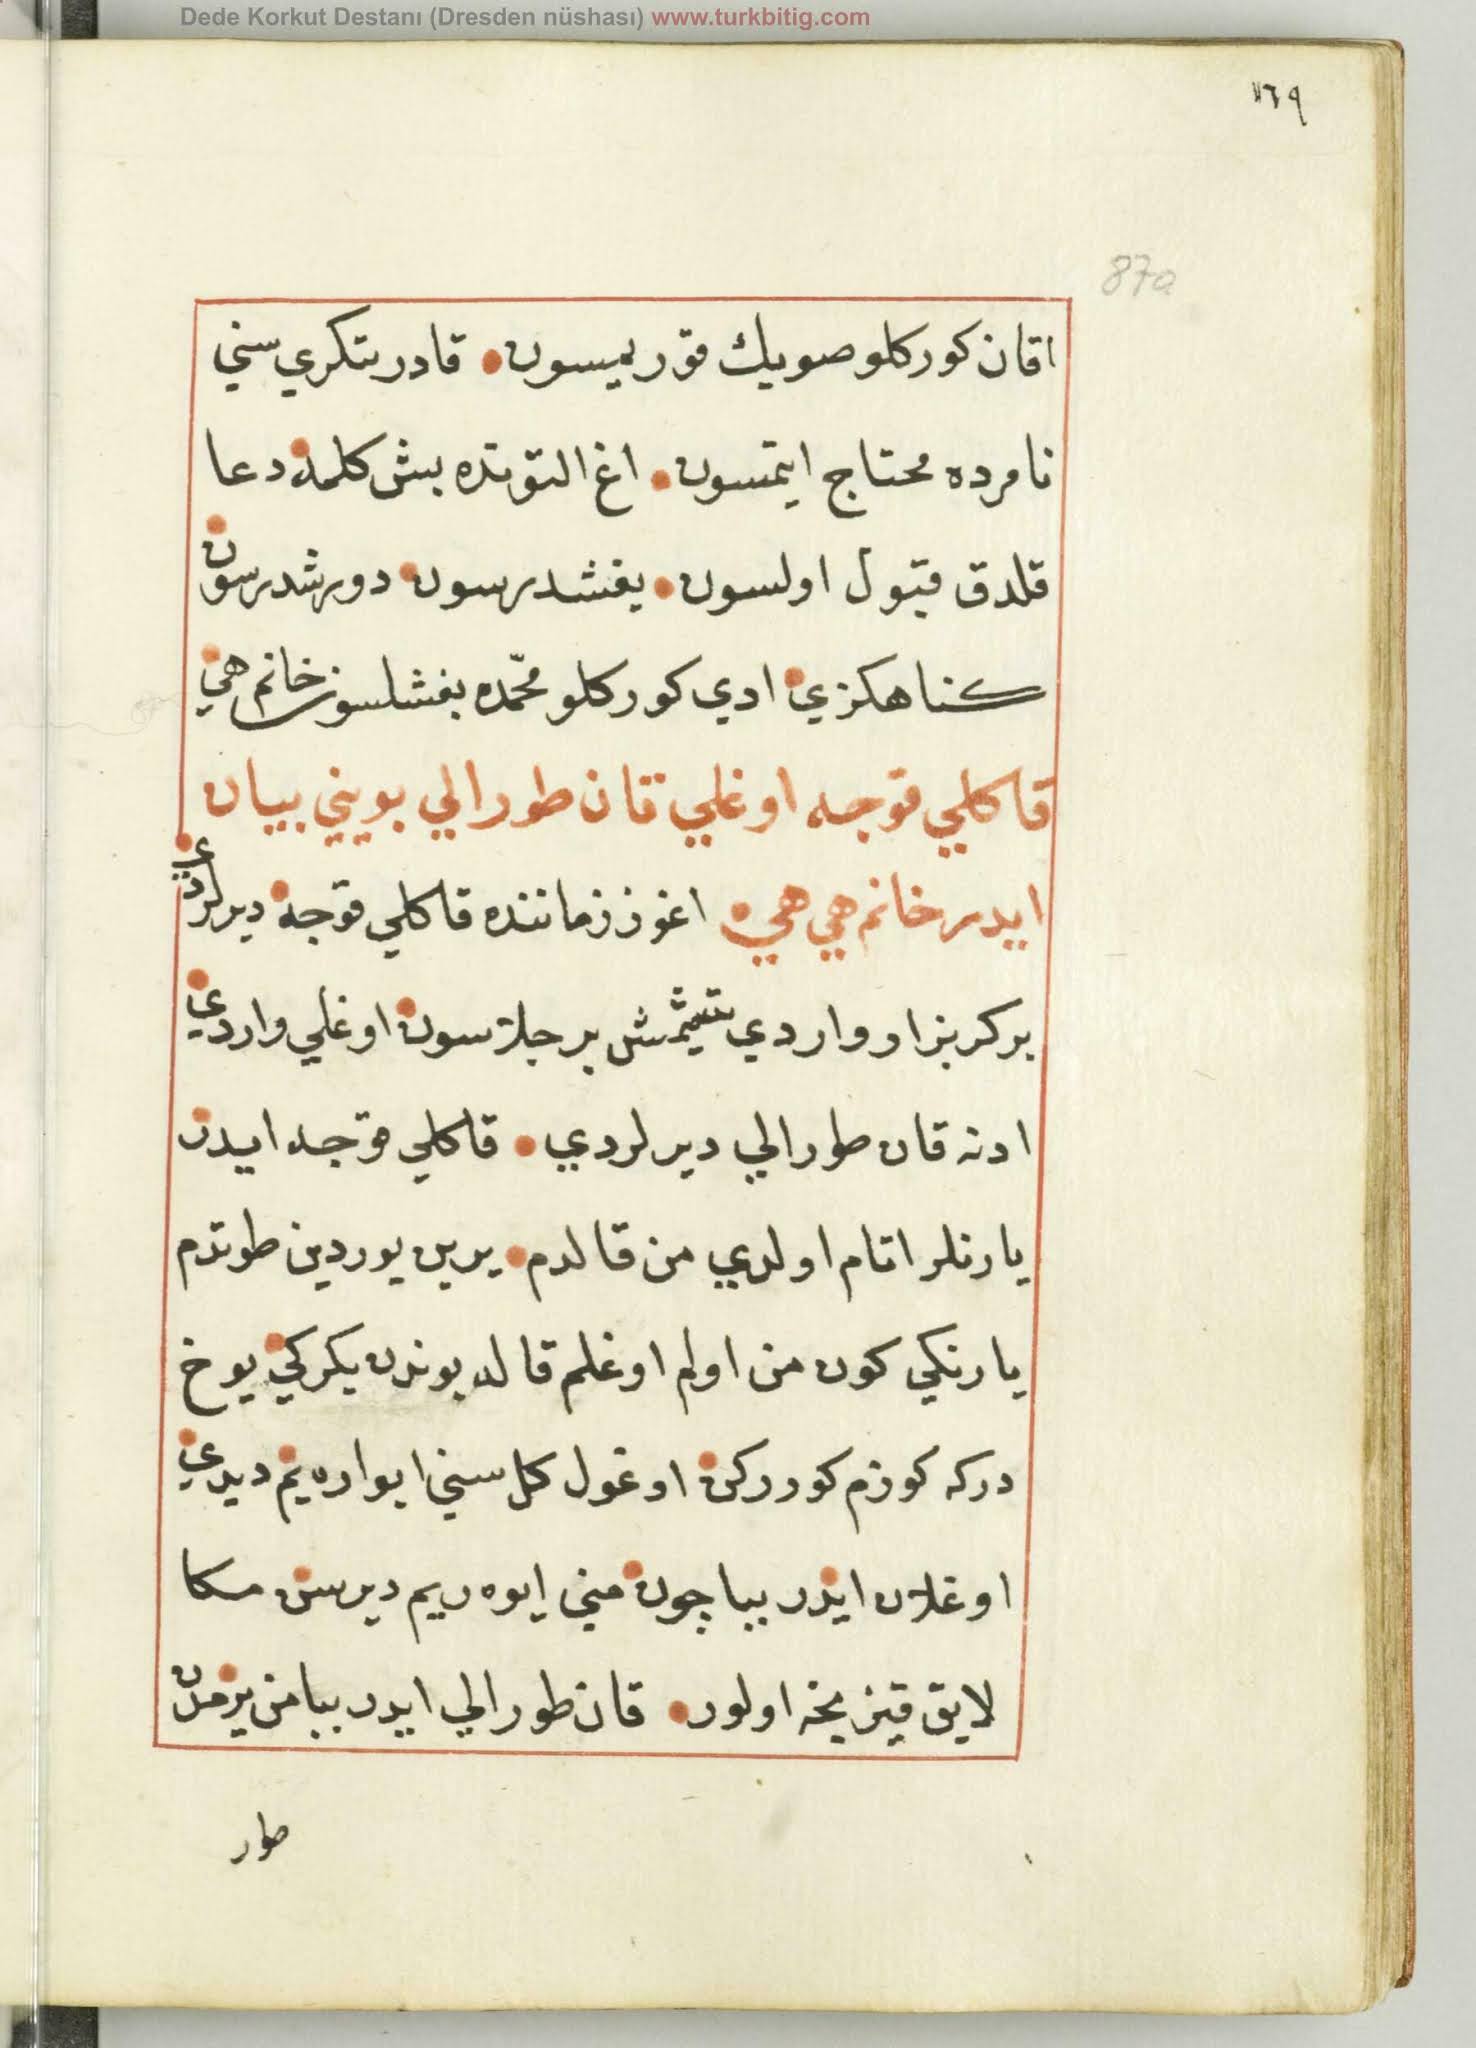 Dede Korkut Destanı (Dresden nüshası) www.turkbitig.com
١٦٩
87a
اقان كوركلو صويك قوريمسون • قادر تنكري سني
نامرده محتاج ايتمسون • اغ النوتده بش كلمه دعا
قلدق قبول اولسون • يغشدرسون دورشدرسون
كناهكزي ادي كوركلو محمّده بغشلسون خانم هي
قاكلي قوجه اوغلي قان طورالي بويني بيان
ايدر خانم هي هي • اغوز زماننده قاكلي قوجه ديرلردي
بر كربز ار واردي يتيشمش بر جلاسون اوغلي واردي
ادنه قان طورالي ديرلردي • قاكلي قوجه ايدر
يارنلر اتام اولدي من قالدم • يرين يوردين طوتدم
يارنكي كون من اولم اوغلم قاله بوندن يكركي يوخ
دركه كوزم كورركن اوغول كل سني ايواره يم ديدي
اوغلان ايدر ببا چون مني ايوه ريم ديرسن مكا
لايق قيز نيجه اولور • قان طورالي ايدر ببا من يرمدن
طور